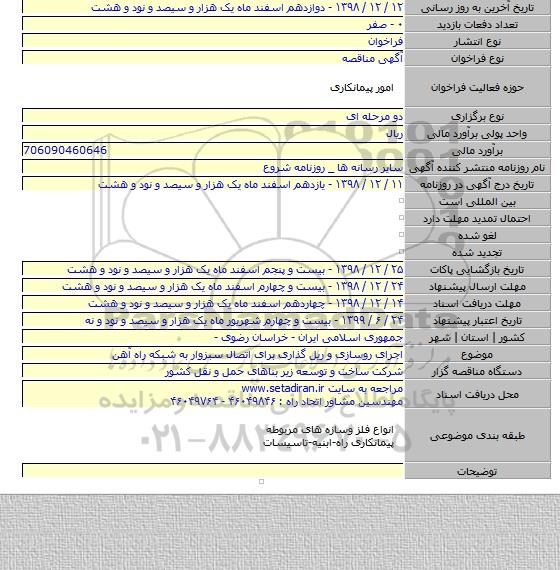 تاریخ آخرین به روز رسانی ۱۲ / ۱۲ / ۱۳۹۸ - دوازدهم اسفند ماه یک هزار و سیصد و نود و هشت
تعداد دفعات بازدید ۰ - صفر
نوع انتشار فراخوان
نوع فراخوان آگهی مناقصه
حوزه فعالیت فراخوان امور پیمانکاری
نوع برگزاری دو مرحله ای
واحد پولی برآورد مالی ریال
برآورد مالی 706090460646
نام روزنامه منتشر کننده آگهی سایر رسانه ها _ روزنامه شروع
تاریخ درج آگهی در روزنامه ۱۱ / ۱۲ / ۱۳۹۸ - یازدهم اسفند ماه یک هزار و سیصد و نود و هشت
بین المللی است
احتمال تمدید مهلت دارد
لغو شده
تجدید شده
تاریخ بازگشایی پاکات ۲۵ / ۱۲ / ۱۳۹۸ - بیست و پنجم اسفند ماه یک هزار و سیصد و نود و هشت
مهلت ارسال پیشنهاد ۲۴ / ۱۲ / ۱۳۹۸ - بیست و چهارم اسفند ماه یک هزار و سیصد و نود و هشت
مهلت دریافت اسناد ۱۴ / ۱۲ / ۱۳۹۸ - چهاردهم اسفند ماه یک هزار و سیصد و نود و هشت
تاریخ اعتبار پیشنهاد ۲۴ / ۶ / ۱۳۹۹ - بیست و چهارم شهریور ماه یک هزار و سیصد و نود و نه
کشور | استان | شهر جمهوری اسلامی ایران - خراسان رضوی -
موضوع اجرای روسازی و ریل گذاری برای اتصال سبزوار به شبکه راه آهن
دستگاه مناقصه گزار شرکت ساخت و توسعه زیر بناهای حمل و نقل کشور
محل دریافت اسناد مراجعه به سایت www.setadiran.ir
مهندسین مشاور اتحاد راه : ۴۶۰۴۹۸۴۶ - ۴۶۰۴۹۷۶۴
طبقه بندی موضوعی انواع فلز وسازه های مربوطه
پیمانکاری راه-ابنیه-تاسیسات
توضیحات
۰۲۱-۸۸۳۴۹۶۷۰-۵